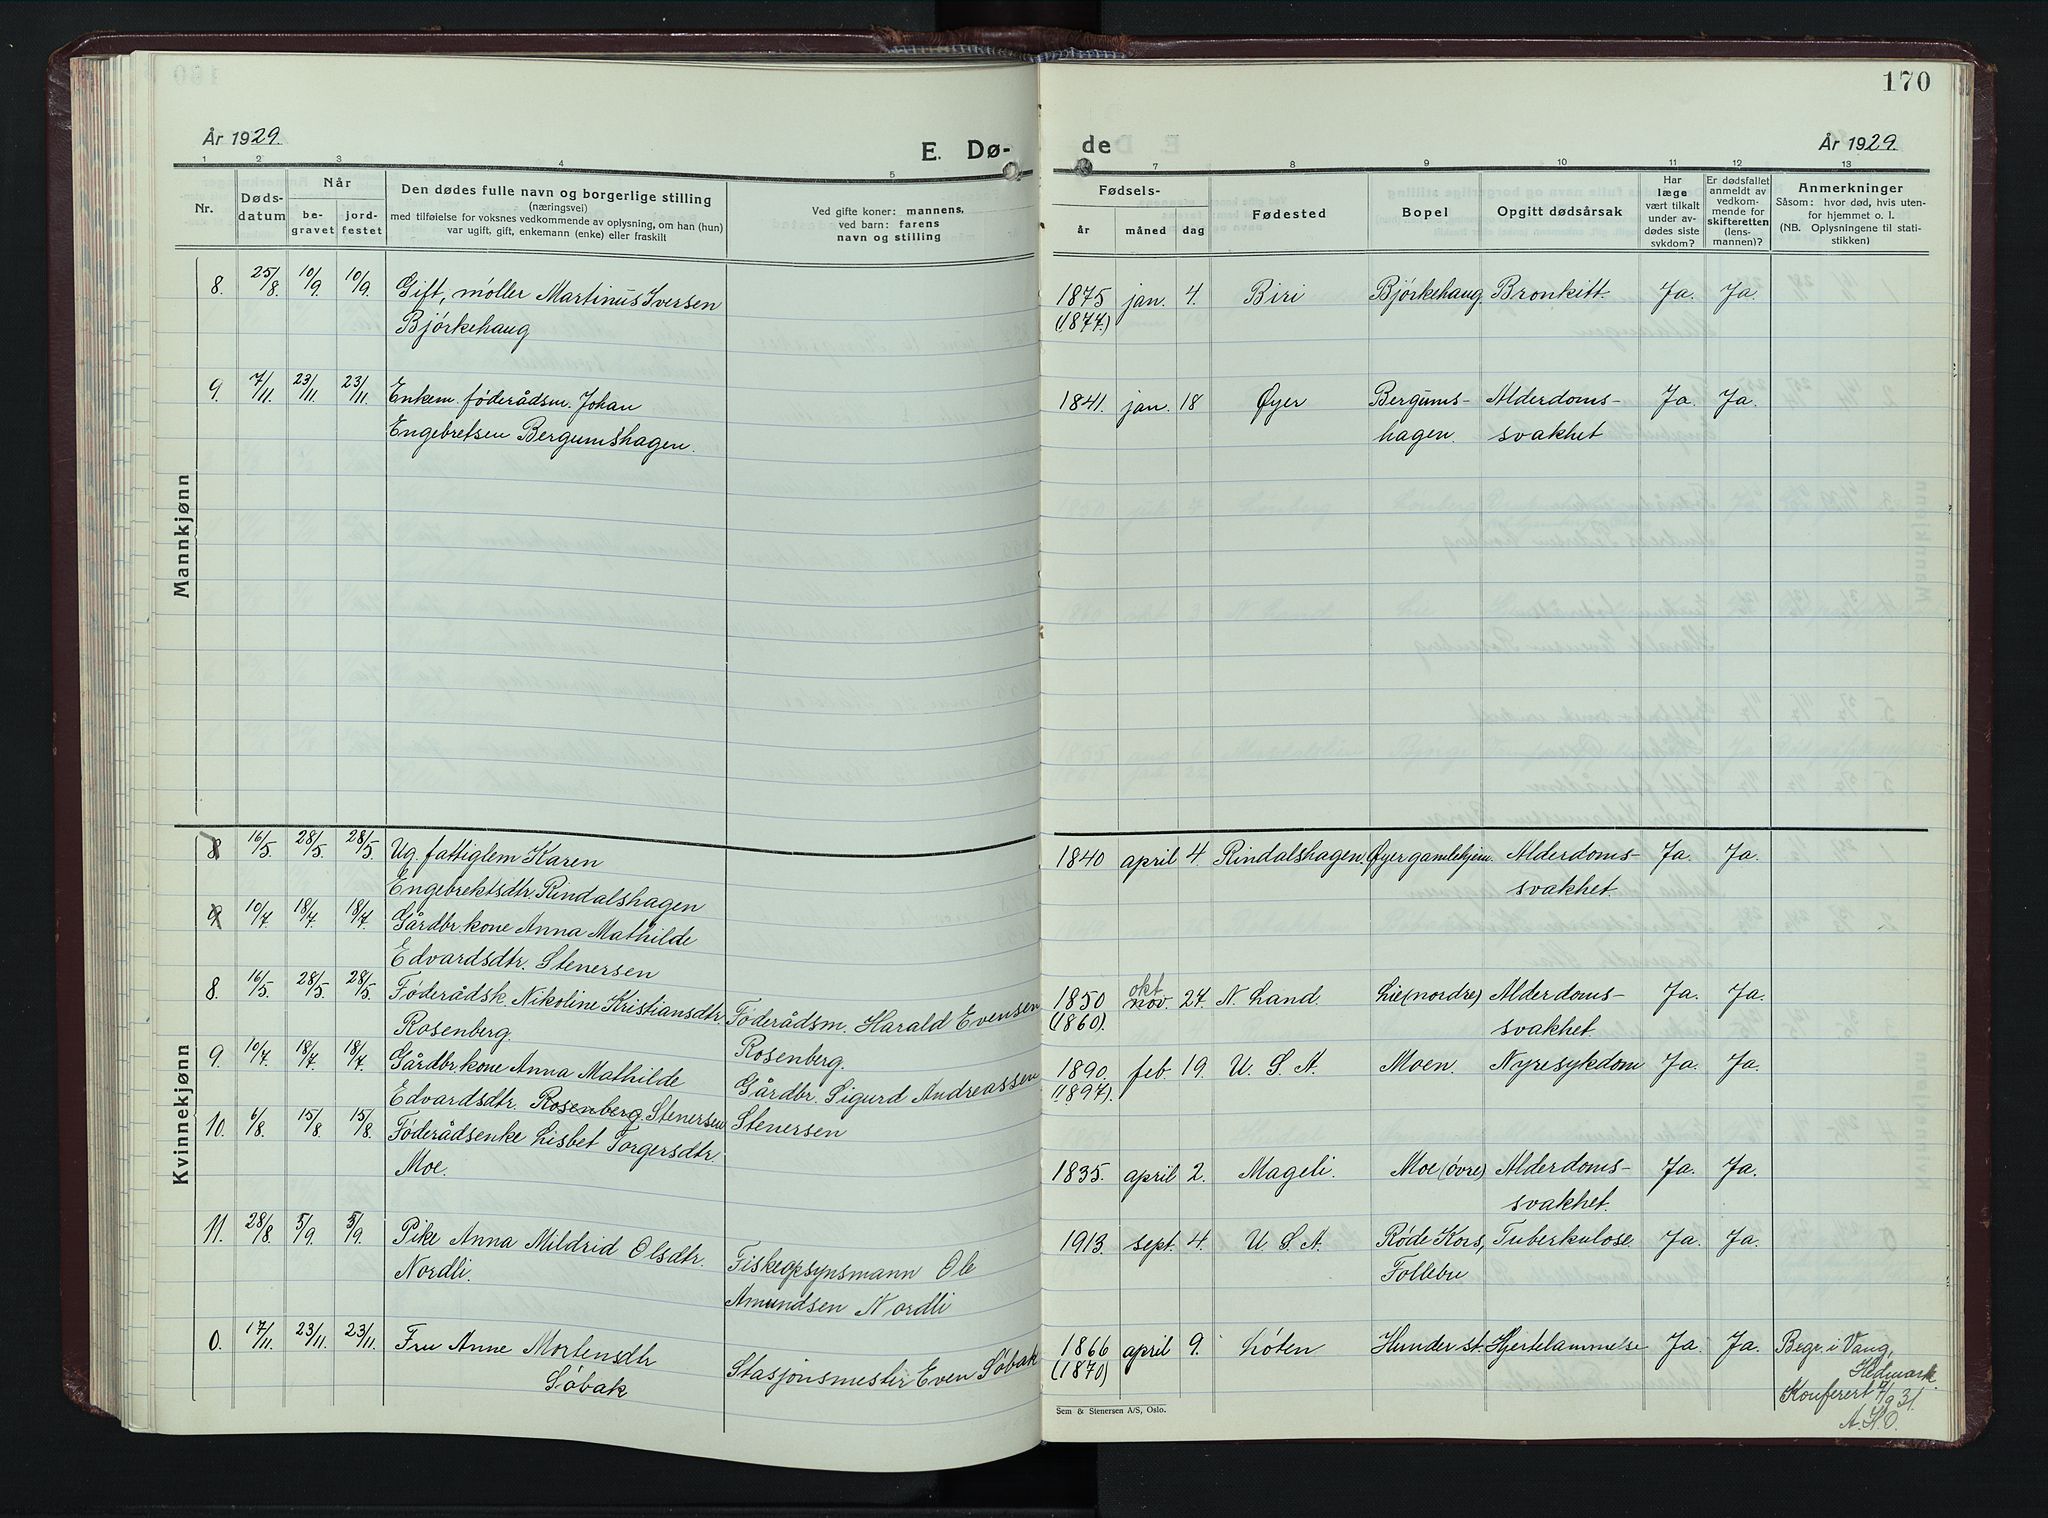 170
År 1929.
E. Dø-
de
År 1929.
1 2 3 4 5 7 8 9 10 11 12 13
Nr.
Døds-
datum
Når
be-
gravet
jord-
festet
Den dødes fulle navn og borgerlige stilling
(næringsvei)
med tilføielse for voksnes vedkommende av oplysning, om han (hun)
var ugift, gift, enkemann (enke) eller fraskilt
Ved gifte koner: mannens,
ved barn: farens
navn og stilling
Fødsels-
år måned dag
Fødested
Bopel
Opgitt dødsårsak
Har
læge
vært tilkalt
under av-
dødes siste
sykdom?
Er dødsfallet
anmeldt av
vedkom-
mende for
skifteretten
(lens-
mannen)?
Anmerkninger
Såsom: hvor død, hvis uten-
for hjemmet o. l.
(NB. Oplysningene til stati-
stikken)
Mannkjønn
8. 25/8. 10/9. 10/9. Gift, møller Martinus Iversen 1875 jan. 4. Biri Bjørkehaug. Bronkitt. Ja. Ja.
Bjørkehaug (1877.)
9. 7/11. 23/11. 23/11. Enkem. føderådsm. Johan 1841. jan. 18 Øyer Bergums- Alderdoms- Ja. Ja.
Engebretsen Bergumshagen. hagen. svakhet
Kvinnekjønn
8 16/5. 28/5. 28/5. Ug. fattiglem Karen 1840 april 4. Rindalshagen. Øyer gamlehjem. Alderdoms- Ja. Ja.
Engebrektsdtr. Rindalshagen svakhet.
9 10/7. 18/7. 18/7. Gårdbr.kone Anna Mathilde
Edvardsdtr. Stenersen
8. 16/5. 28/5. 28/5. Føderådsk. Nikoline Kristiansdtr. Føderådsm. Harald Evensen 1850 okt nov. 27. N. Land. Lie (nordre) Alderdoms- Ja. Ja.
Rosenberg. Rosenberg. (1860). svakhet
9. 10/7. 18/7. 18/7. Gårdbr.kone Anna Mathilde Gårdbr. Sigurd Andreassen 1890 feb. 19. U. S. A. Moen. Nyresykdom Ja. Ja.
Edvardsdtr. Rosenberg. Stenersen Stenersen (1897).
10. 6/8. 15/8. 15/8. Føderådsenke Lisbet Torgersdtr. 1835. april 2. Mageli. Moe (øvre) Alderdoms- Ja. Ja.
Moe. svakhet.
11. 28/8. 5/9. 5/9. Pike Anna Mildrid Olsdtr. Fiskeopsynsmann Ole 1913. sept. 4. U. S. A. Røde Kors, Tuberkulose. Ja. Ja.
Nordli. Amundsen Nordli Follebu
0. 17/11. 23/11. 23/11. Fru Anne Mortensdtr Stasjonsmester Even Søbak 1866 april 9. Løten Hunder st. Hjertelammelse Ja. Ja. Begr. i Vang,
Søbak (1870) Hedmark.
Konferert 4/9 31.
A. H. O.
Sem & Stenersen A/S, Oslo.